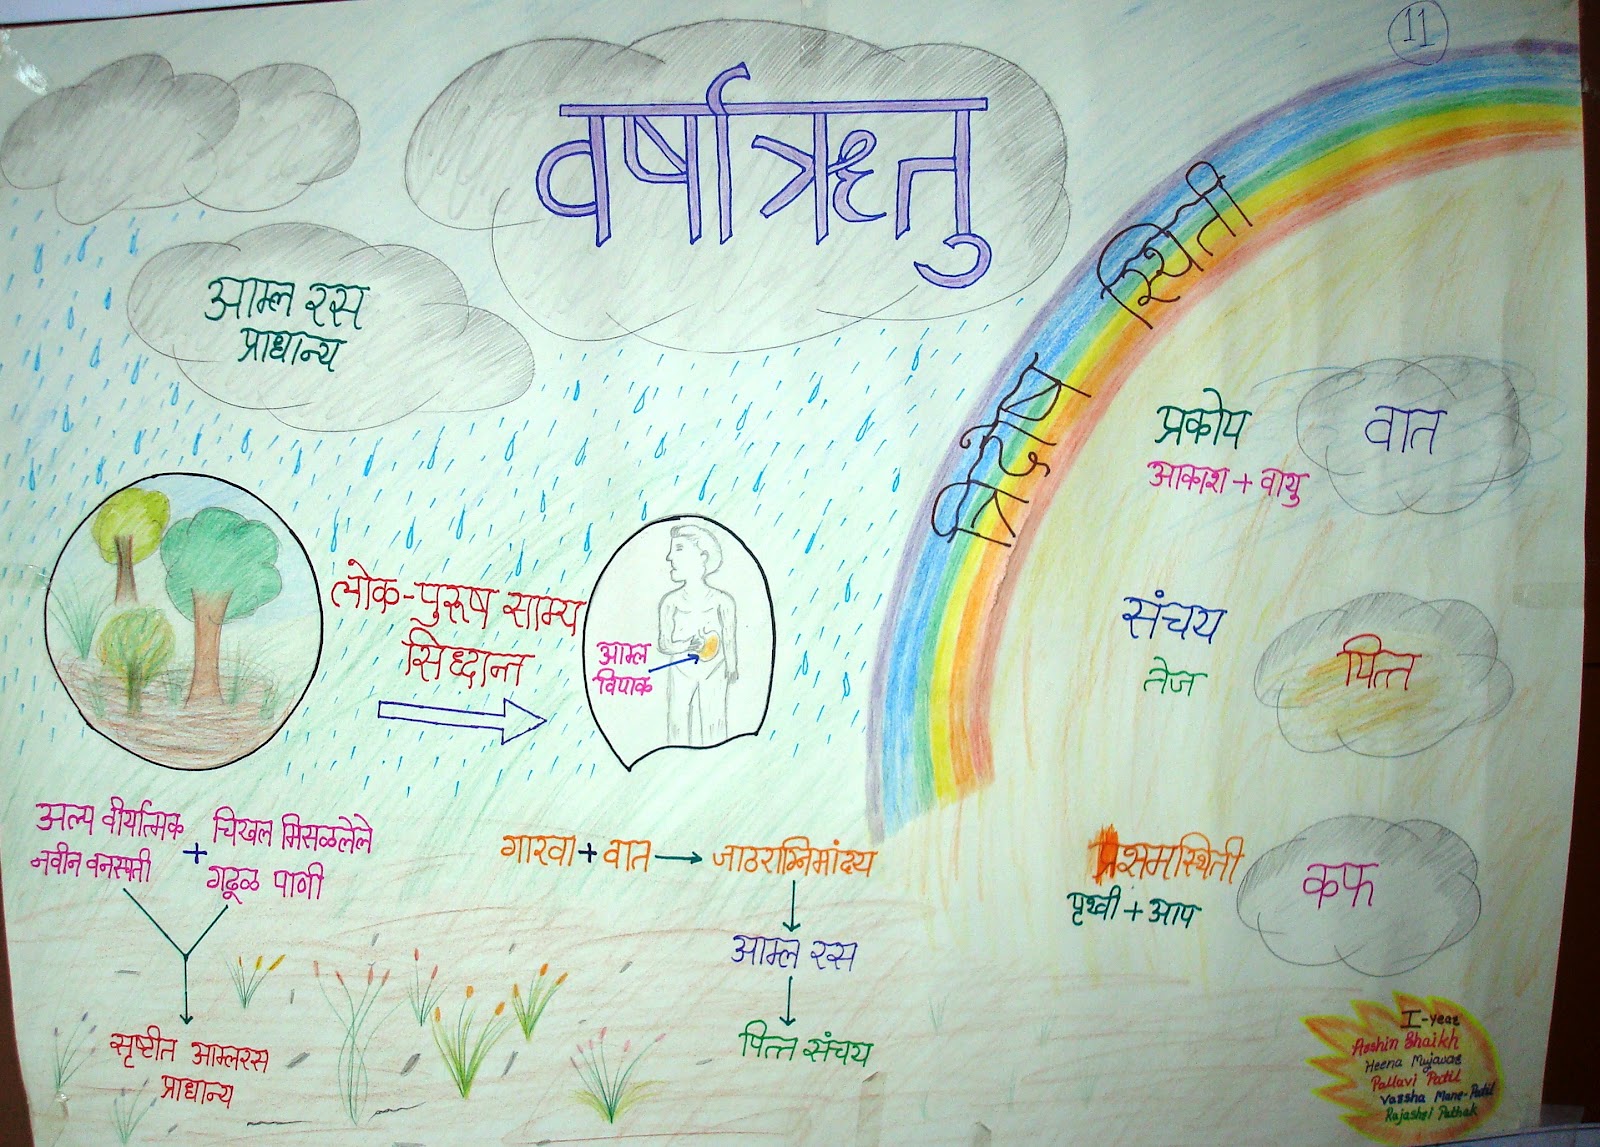 11
वर्षाऋतु
आम्ल रस
प्राधान्य
त्रिदोष स्थिती
प्रकोप
आकाश + वायु
वात
संचय
तेज
पित्त
प्रशमस्थिती
पृथ्वी + आप
कफ
लोक-पुरूष साम्य
सिध्दान्त
आम्ल
विपाक
अल्प वीर्यात्मक
नवीन वनस्पती
+
चिखल मिसळलेले
गढूळ पाणी
सृष्टीत आम्लरस
प्राधान्य
गारवा + वात → जाठराग्निमांद्य
आम्ल रस
पित्त संचय
I-year
Asshin Shaikh
Heena Mujawar
Pallavi Patil
Varsha Mane-Patil
Rajashri Pathak